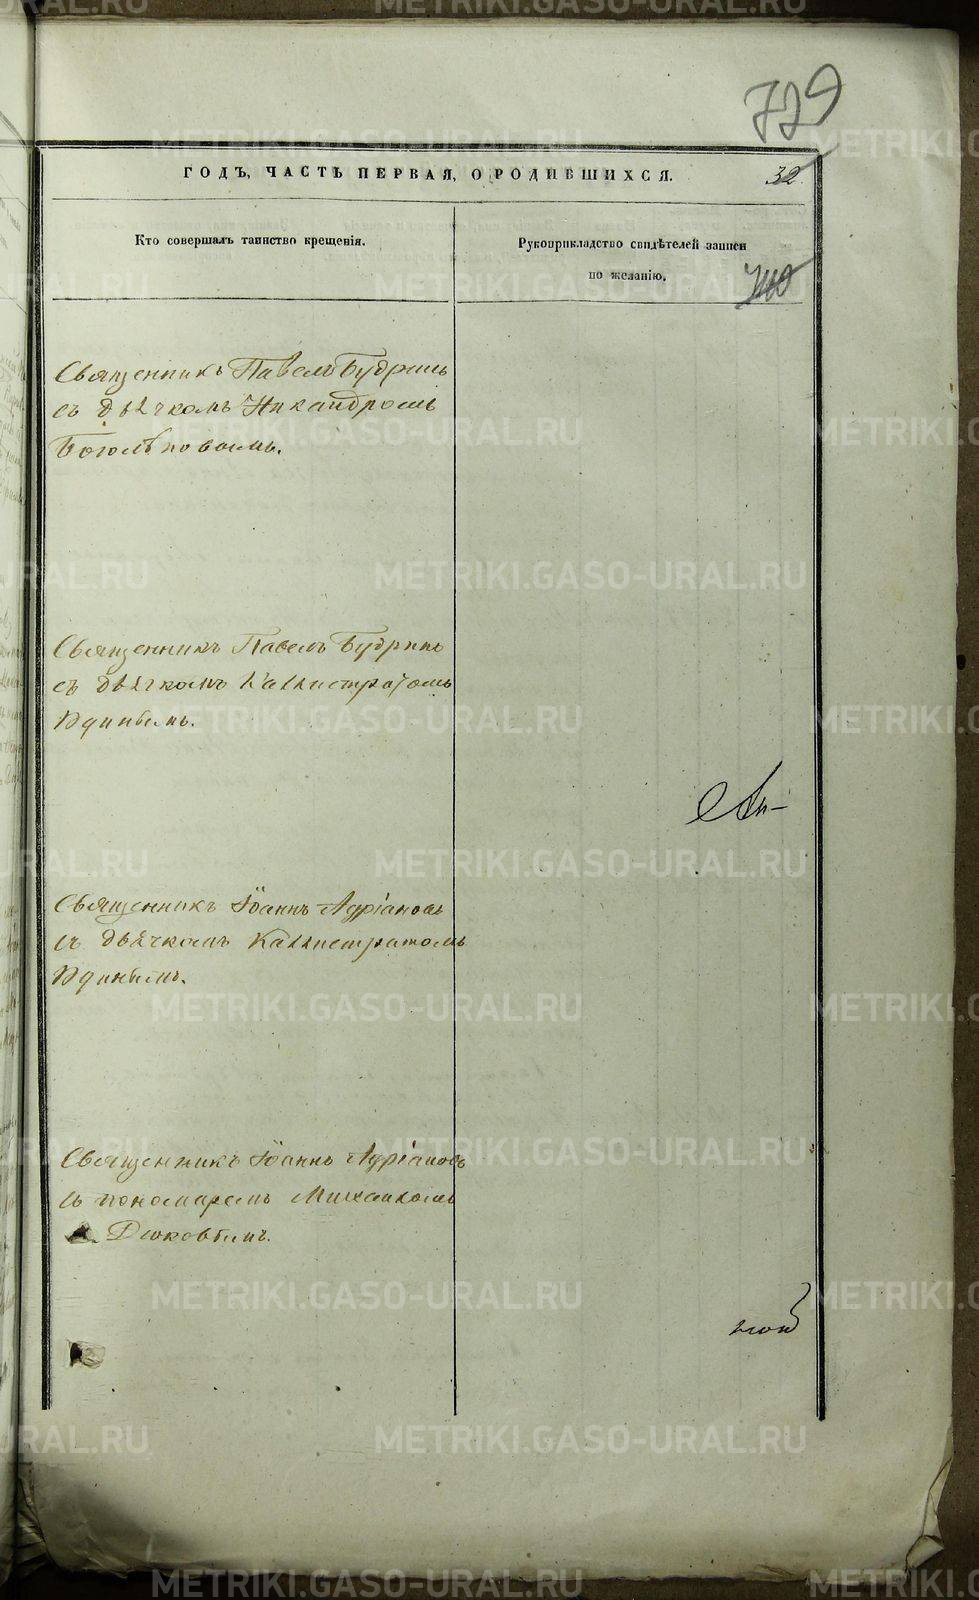 729
ГОДЪ, ЧАСТЬ ПЕРВАЯ, О РОДИВШИХСЯ.
32.
Кто совершалъ таинство крещенія.
Рукоприкладство свидѣтелей записи
по желанію.
Священникъ Павелъ Будринъ
съ дьячкомъ Никандромъ
Боголѣповымъ.
Священникъ Павелъ Будринъ
съ дьячкомъ Каллистратомъ
Удинымъ.
Ап-
Священникъ Іоаннъ Адріановъ
съ дьячкомъ Каллистратомъ
Удинымъ.
Священникъ Іоаннъ Адріановъ
съ пономаремъ Михаиломъ
Дюковымъ.
METRIKI.GASO-URAL.RU